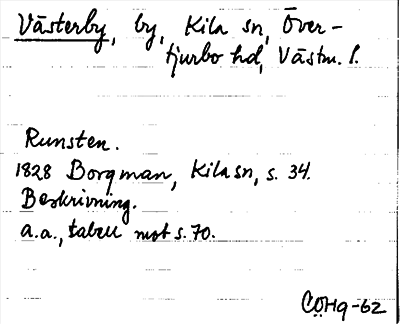 Västerby, by, Kila sn, Över-
tjurbo hd, Västm. l.
Runsten.
1828 Borgman, Kila sn, s. 34.
Beskrivning.
a.a., tabell mot s. 70.
CÖHg-62